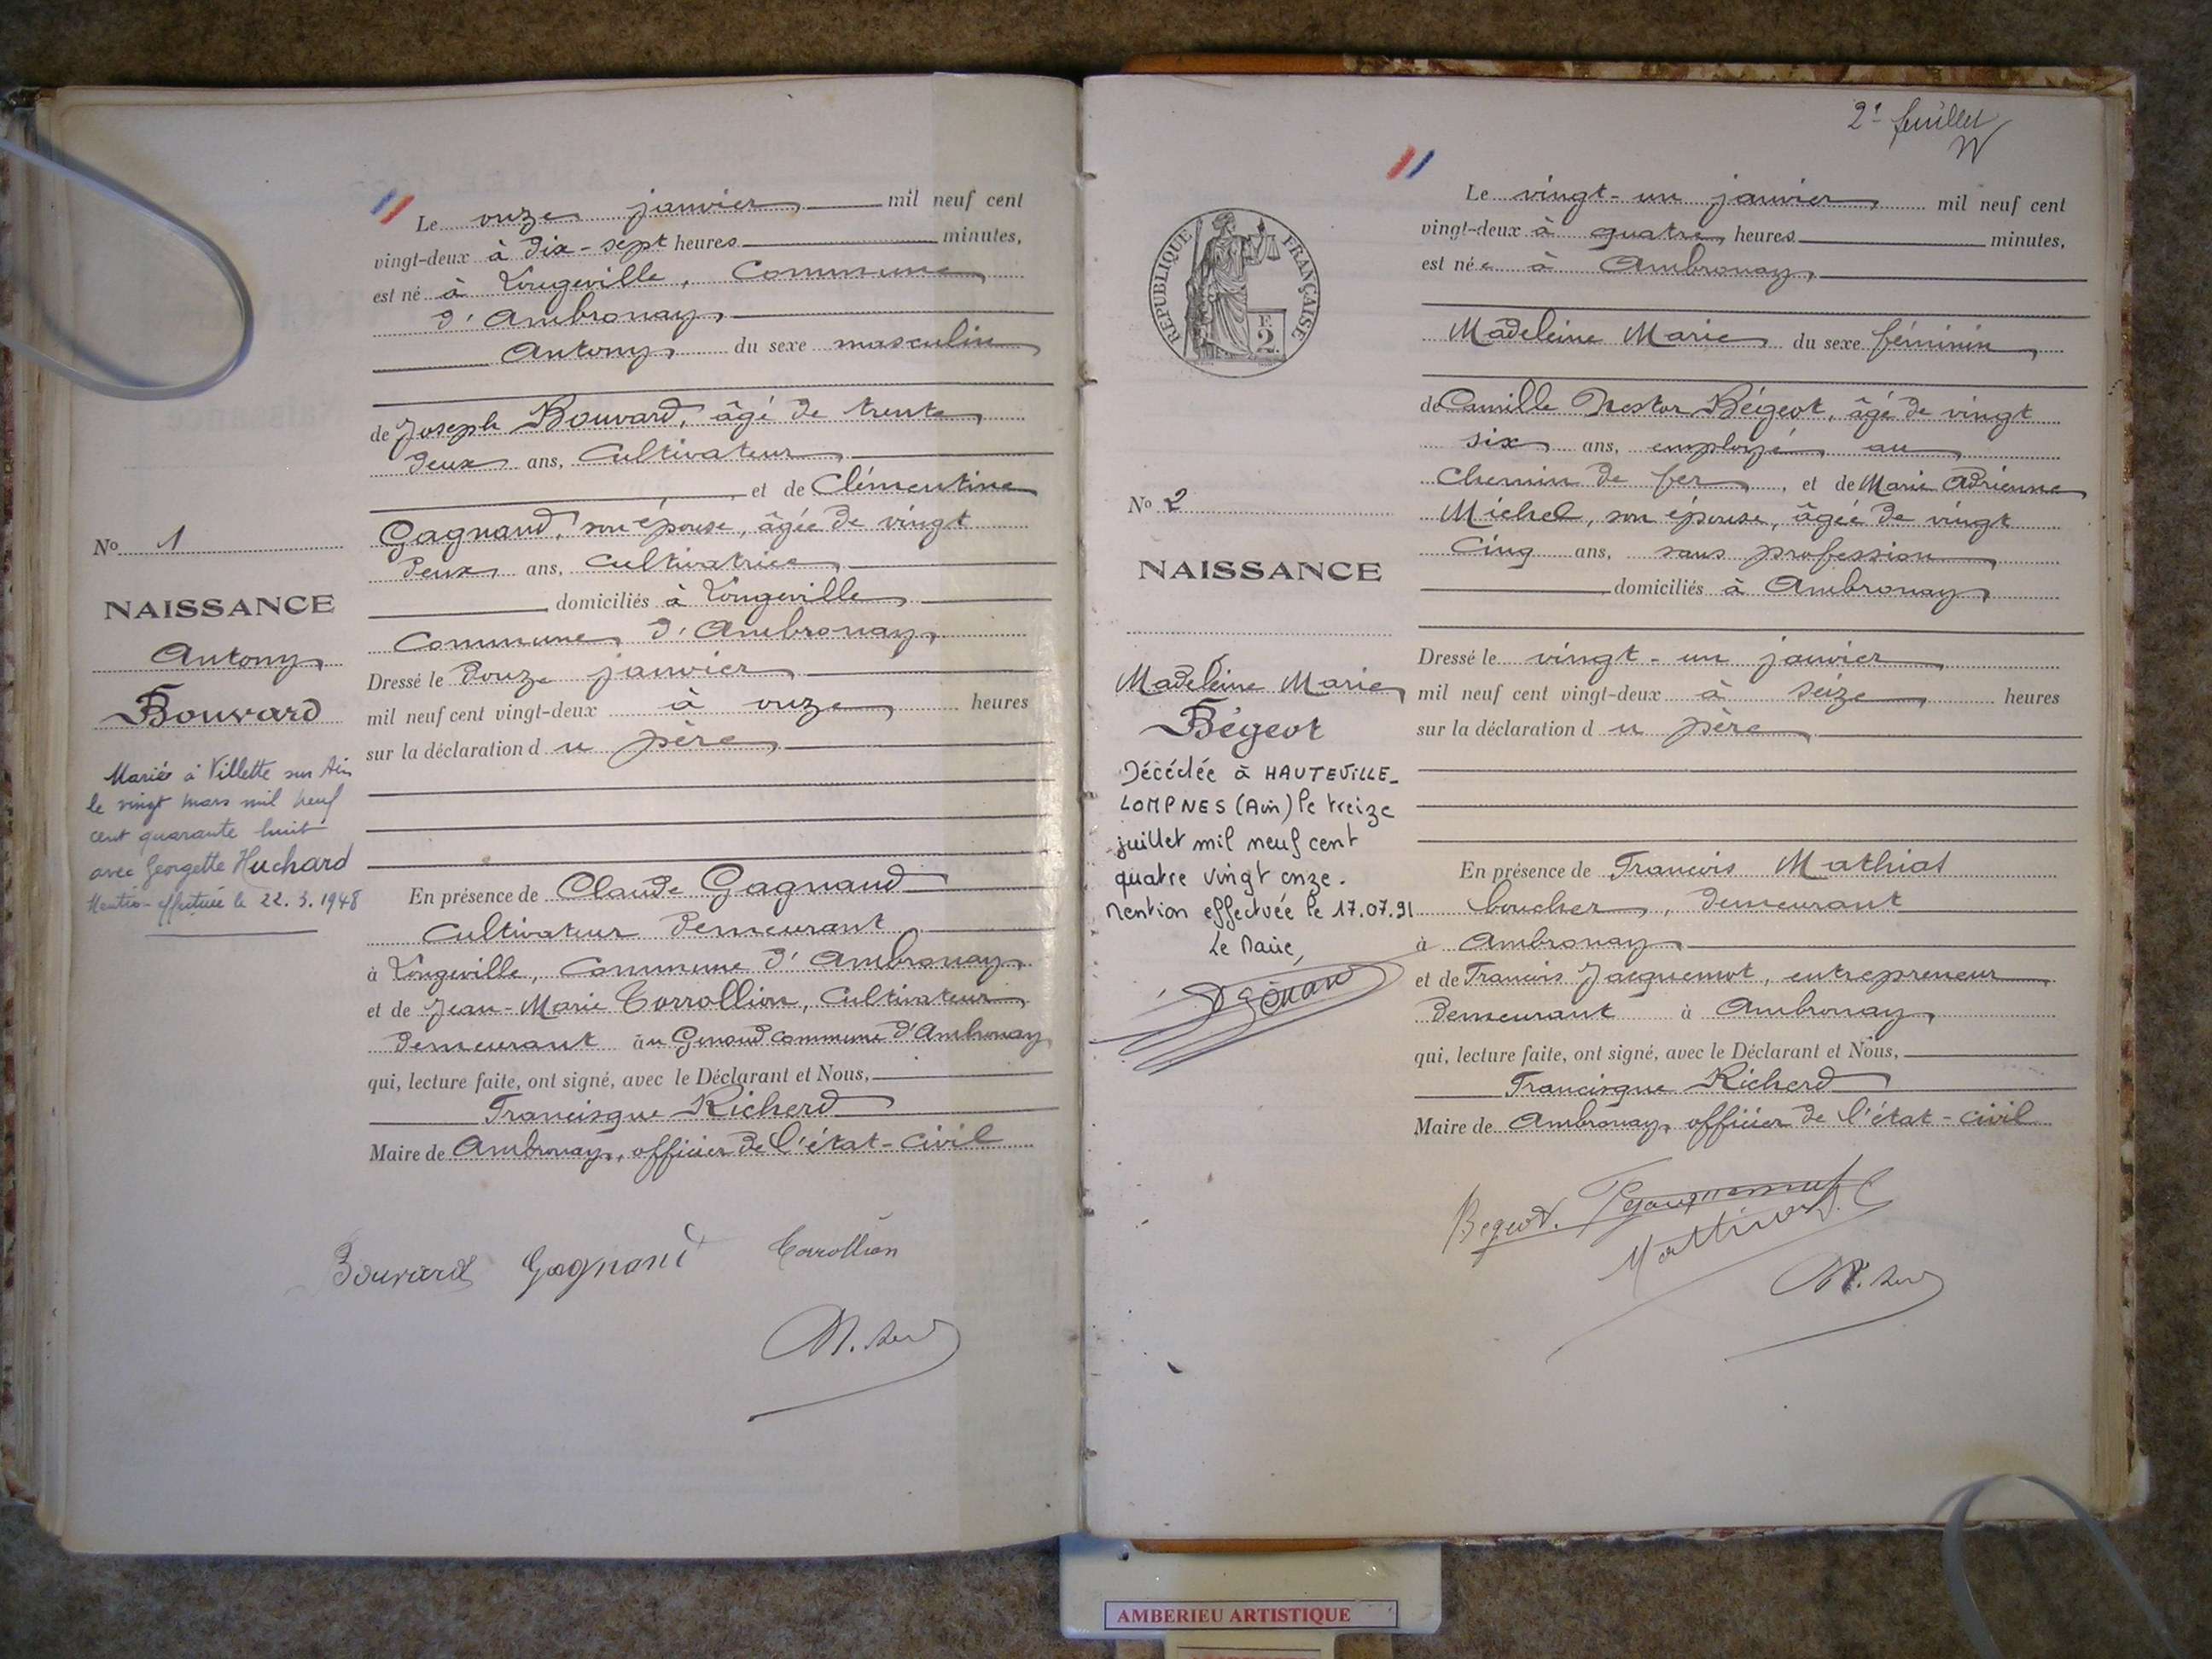 Le onze janvier mil neuf cent
vingt-deux à dix-sept heures minutes,
est né à Longeville, Commune
d'Ambronay,
Antony du sexe masculin
de Joseph Bouvard, âgé de trente
deux ans, Cultivateur
et de Clémentine
Gagnaud, son épouse, âgée de vingt
deux ans, Cultivatrice
domiciliés à Longeville
Commune d'Ambronay,
Dressé le douze janvier
mil neuf cent vingt-deux à onze heures
sur la déclaration du père
En présence de Claude Gagnaud
Cultivateur demeurant
à Longeville, Commune d'Ambronay
et de Jean-Marie Corrollion, Cultivateur
demeurant au Genoud Commune d'Ambronay
qui, lecture faite, ont signé, avec le Déclarant et Nous,
Francisque Richerd
Maire de Ambronay, officier de l'état-civil
Bouvard Gagnaud Corrollion
No 1
NAISSANCE
Antony
Bouvard
Mariés à Villette sur Ain
le vingt mars mil neuf
cent quarante huit
avec Georgette Huchard
Mention effectuée le 22.3.1948
2e feuillet
REPUBLIQUE FRANÇAISE
F.
2
No 2
NAISSANCE
Madeleine Marie
Bégeot
Décédée à HAUTEVILLE-
LOMPNES (Ain) le treize
juillet mil neuf cent
quatre vingt onze.
Mention effectuée le 17.07.91
Le Maire,
Le vingt-un janvier mil neuf cent
vingt-deux à quatre heures minutes,
est née à Ambronay,
Madeleine Marie du sexe féminin
de Camille Nestor Bégeot, âgé de vingt
six ans, employé au
Chemin de fer, et de Marie Adrienne
Michel, son épouse, âgée de vingt
Cinq ans, sans profession
domiciliés à Ambronay
Dressé le vingt-un janvier
mil neuf cent vingt-deux à seize heures
sur la déclaration du père
En présence de Francois Mathias
boucher, demeurant
à Ambronay
et de Francois Jacquemot, entrepreneur
demeurant à Ambronay
qui, lecture faite, ont signé, avec le Déclarant et Nous,
Francisque Richerd
Maire de Ambronay, officier de l'état-civil
Begeot.
AMBERIEU ARTISTIQUE